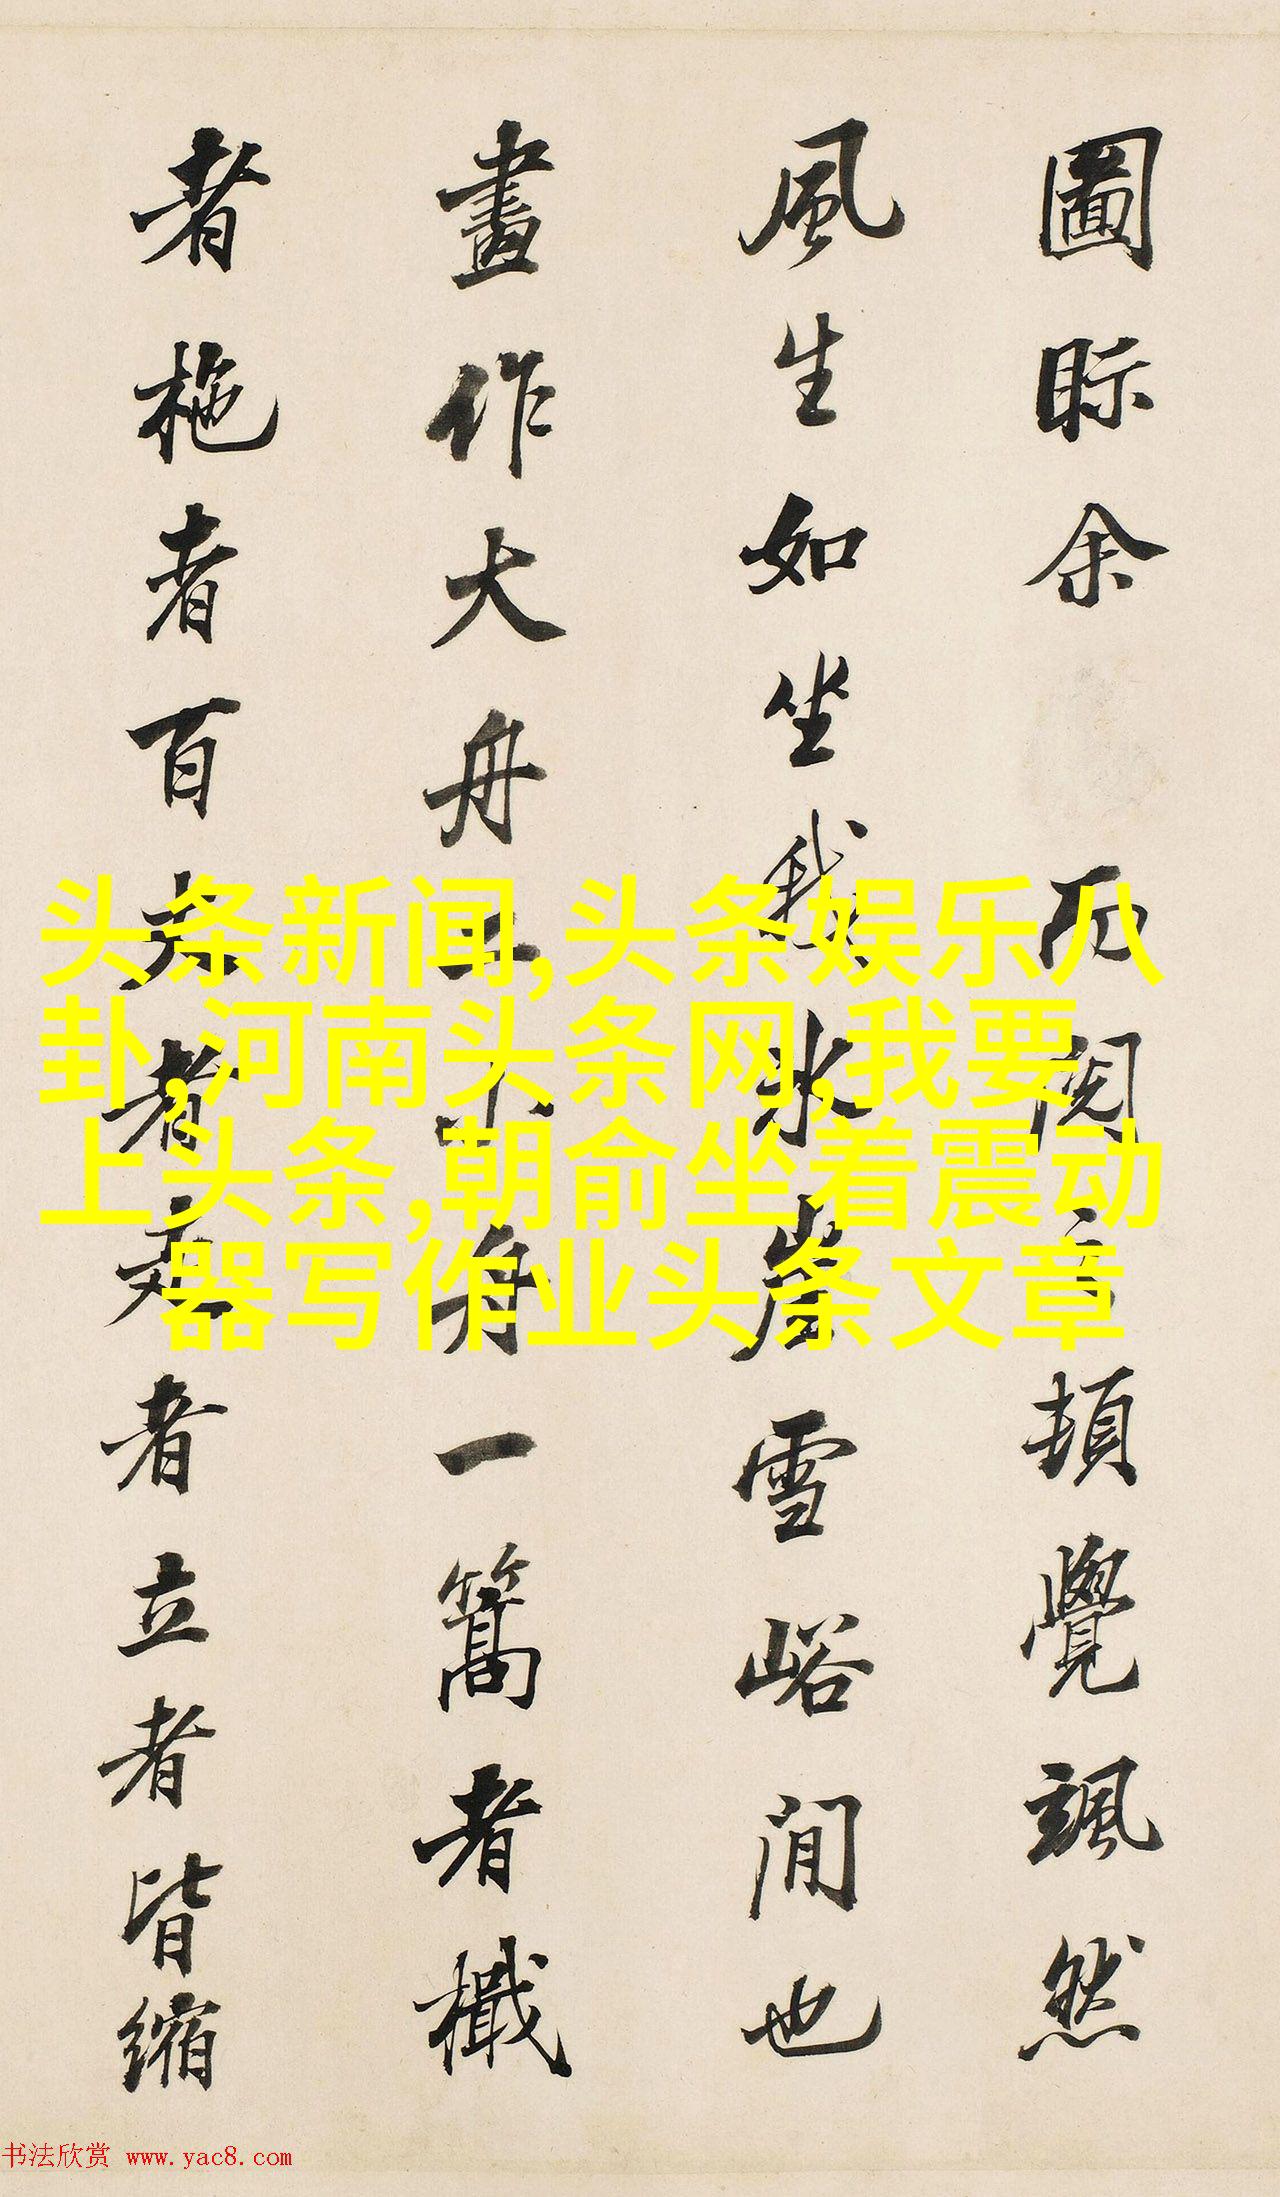 圖眎余而閱頓覺颯然
風生如坐我冰崖雪峪間也
畫作大舟二小舟一篙者檝
者柂者百者者立者皆縮
头条新闻,头条娱乐八
卦,河南头条网,我要
上头条,朝俞坐着震动
器写作业头条文章
书法欣赏 www.yac8.com